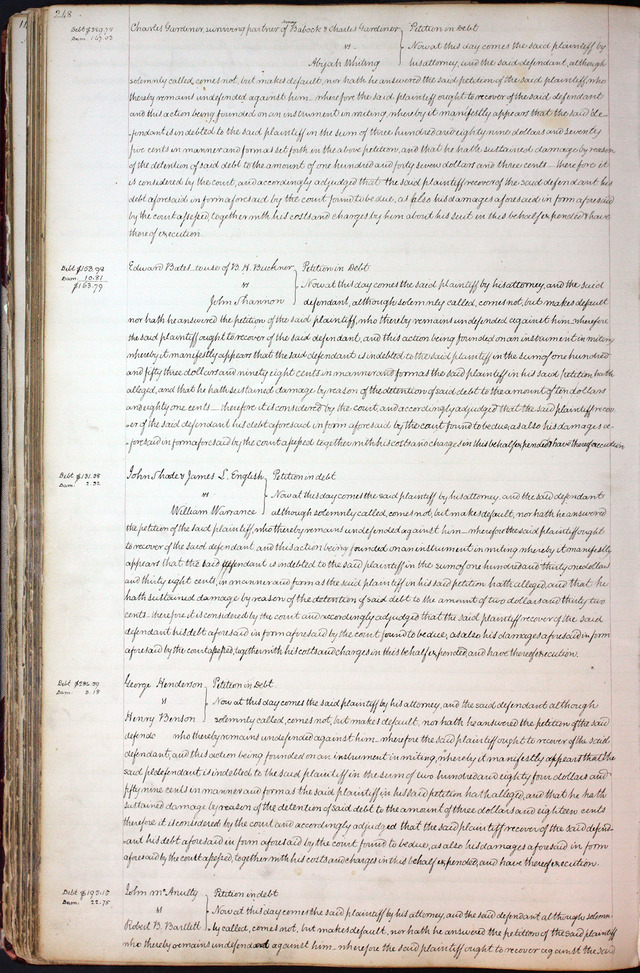 248.
Debt $389.75
Dam. 147.03
Charles Gardener, surviving partner of Babcock & Charles Gardener } Petition in Debt
vs Now at this day comes the said plaintiff by
Abijah Whiting his attorney, and the said defendant, although
solemnly called, comes not, but makes default, nor hath he answered the said petition of the said plaintiff, who
thereby remains undefended against him. wherefore the said plaintiff ought to recover of the said defendant
and this action being founded on an instrument in writing, whereby it manifestly appears that the said de-
fendant is indebted to the said plaintiff in the sum of three hundred and eighty nine dollars and seventy
five cents in manner and form as set forth in the above petition, and that he hath sustained damage by reason
of the detention of said debt to the amount of one hundred and forty seven dollars and three cents - therefore it
is considered by the court, and accordingly adjudged that the said plaintiff recover of the said defendant his
debt aforesaid in form aforesaid by the court found to be due, as also his damages aforesaid in form aforesaid
by the court assessed together with his costs and charges by him about his suit in this behalf expended & have
there of execution.
Debt $153.98
Dam. 10.81
$163.79
Edward Bates to use of B. H. Buckner } Petition in Debt
vs Now at this day comes the said plaintiff by his attorney, and the said
John Shannon defendant, although solemnly called, comes not, but makes default
nor hath he answered the petition of the said plaintiff, who thereby remains undefended against him - wherefore
the said plaintiff ought to recover of the said defendant, and this action being founded on an instrument in writing
whereby it manifestly appears that the said defendant is indebted to the said plaintiff in the sum of one hundred
and fifty three dollars and ninety eight cents in manner and form as the said plaintiff in his said petition hath
alleged, and that he hath sustained damage by reason of the detention of said debt to the amount of ten dollars
and eighty one cents - therefore it is considered by the court, and accordingly adjudged that the said plaintiff recov-
er of the said defendant his debt aforesaid in form aforesaid by the court found to be due, as also his damages a-
foresaid in form aforesaid by the court assessed together with his costs and charges in this behalf expended & have thereof execution
Debt $131.38
Dam. 2.32
John Shade & James L. English } Petition in debt
vs Now at this day comes the said plaintiff by his attorney, and the said defendant
William Warrance although solemnly called, comes not, but makes default, nor hath he answered
the petition of the said plaintiff, who thereby remains undefended against him - wherefore the said plaintiff ought
to recover of the said defendant, and this action being founded on an instrument in writing whereby it manifestly
appears that the said defendant is indebted to the said plaintiff in the sum of one hundred and thirty one dollars
and thirty eight cents, in manner and form as the said plaintiff in his said petition hath alleged, and that he
hath sustained damage by reason of the detention of said debt to the amount of two dollars and thirty two
cents - therefore it is considered by the court and accordingly adjudged that the said plaintiff recover of the said
defendant his debt aforesaid in form aforesaid by the court found to be due, as also his damages aforesaid in form
aforesaid by the court assessed, together with his costs and charges in this behalf expended, and have thereof execution.
Debt $284.59
Dam. 3.18
George Henderson } Petition in Debt
vs Now at this day comes the said plaintiff by his attorney, and the said defendant although
Henry Benson solemnly called, comes not, but makes default, nor hath he answered the petition of the said
defende who thereby remains undefended against him - wherefore the said plaintiff ought to recover of the said
defendant, and this action being founded on an instrument in writing, whereby it manifestly appears that the
said defendant is indebted to the said plaintiff in the sum of two hundred and eighty four dollars and
fifty nine cents in manner and form as the said plaintiff in his said petition hath alleged, and that he hath
sustained damage by reason of the detention of said debt to the amount of three dollars and eighteen cents
therefore it is considered by the court and accordingly adjudged that the said plaintiff recover of the said defend-
ant his debt aforesaid in form aforesaid by the court found to be due, as also his damages aforesaid in form
aforesaid by the court assessed, together with his costs and charges in this behalf expended, and have thereof execution.
Debt $195.15
Dam. 22.75
John McAnulty } Petition in debt
vs Now at this day comes the said plaintiff by his attorney, and the said defendant although solemn-
Robert B. Bartlett ly called, comes not, but makes default, nor hath he answered the petition of the said plaintiff
who thereby remains undefended against him - wherefore the said plaintiff ought to recover against the said